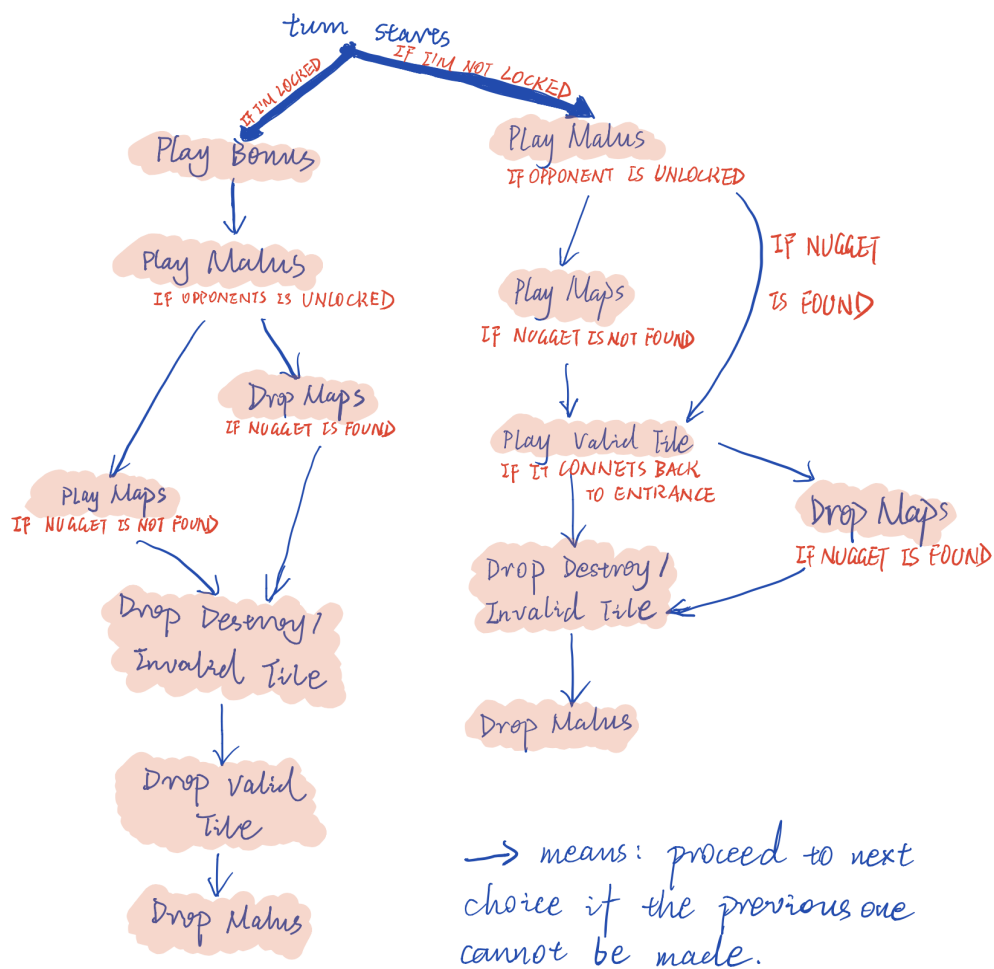 turn stares
IF I'M LOCKED
IF I'M NOT LOCKED
Play Bonus
Play Malus
IF OPPONENTS IS UNLOCKED
Drop Maps
IF NUGGET IS FOUND
Play Maps
IF NUGGET IS NOT FOUND
Drop Destroy/
Invalid Tile
Drop Valid
Tile
Drop Malus
Play Malus
IF OPPONENT IS UNLOCKED
IF NUGGET
IS FOUND
Play Maps
IF NUGGET IS NOT FOUND
Play Valid Tile
IF IT CONNETS BACK
TO ENTRANCE
Drop Maps
IF NUGGET IS FOUND
Drop Destroy/
Invalid Tile
Drop Malus
→ means: proceed to next
choice if the previous one
cannot be made.